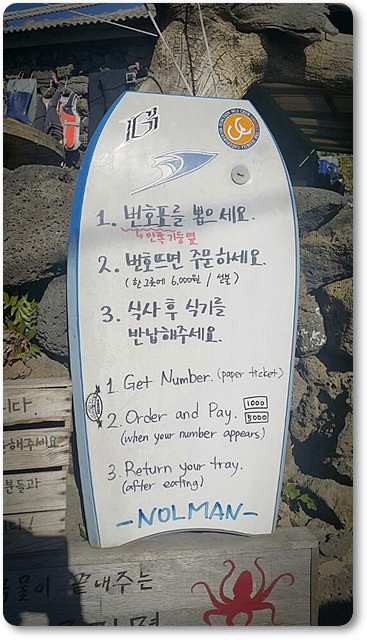 1. 번호표를 뽑으세요.
↳ 안쪽 기둥 옆
2. 번호뜨면 주문하세요.
(한그릇에 6,000원 / 선불)
3. 식사 후 식기를
반납해주세요.
1. Get Number. (paper ticket)
2. Order and Pay. 1000 5000
(when your number appears)
3. Return your tray.
(after eating)
-NOLMAN-
니다.
해주세요
분들과
국물이 끝내주는